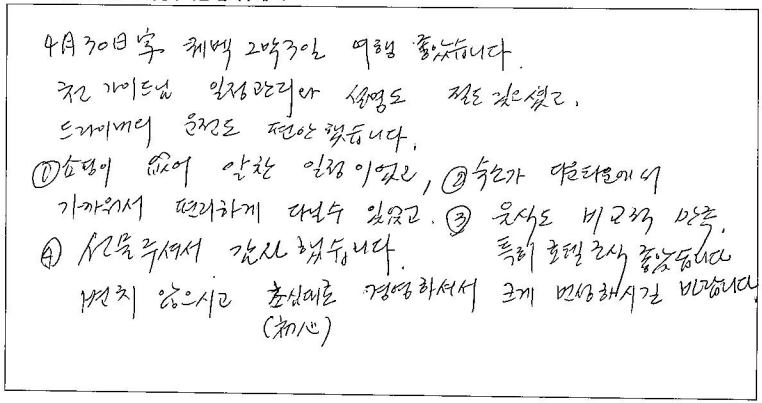 4月30日字 퀘벡 2박3일 여행 좋았습니다.
가이드님 일정관리와 설명도 절도 있으셨고,
드라이버의 운전도 편안했습니다.
① 쇼핑이 없어 알찬 일정이었고, ② 숙소가 다운타운에서
가까워서 편리하게 다닐수 있었고. ③ 음식도 비교적 만족.
④ 선물주셔서 감사했습니다. 특히 호텔조식 좋았습니다
변치 않으시고 초심대로 경영하셔서 크게 번성하시길 바랍니다
(初心)